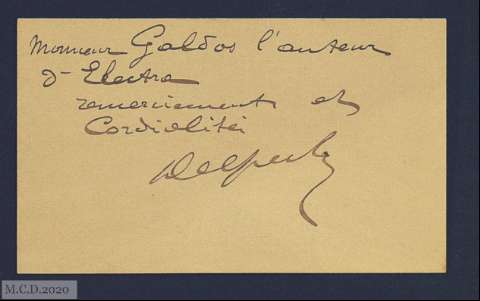 Monsieur Galdós l'auteur
d'Electra
remerciements et
Cordialités
M.C.D.2020